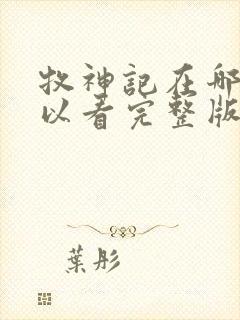 牧神記在哪
以看完整版
葉彤